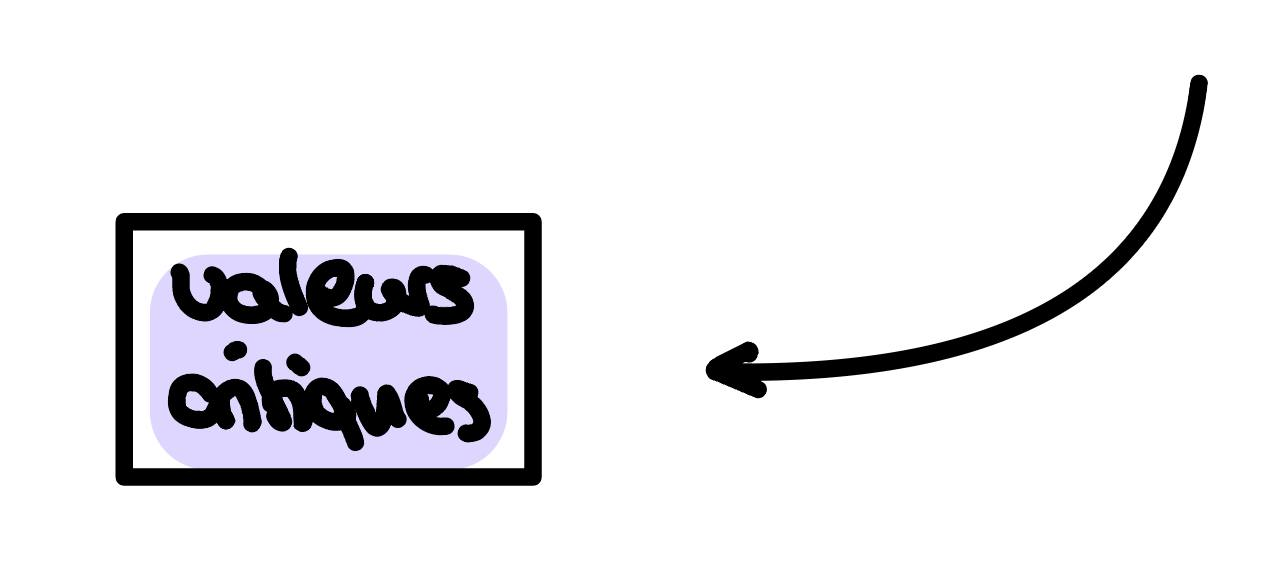 valeurs
critiques